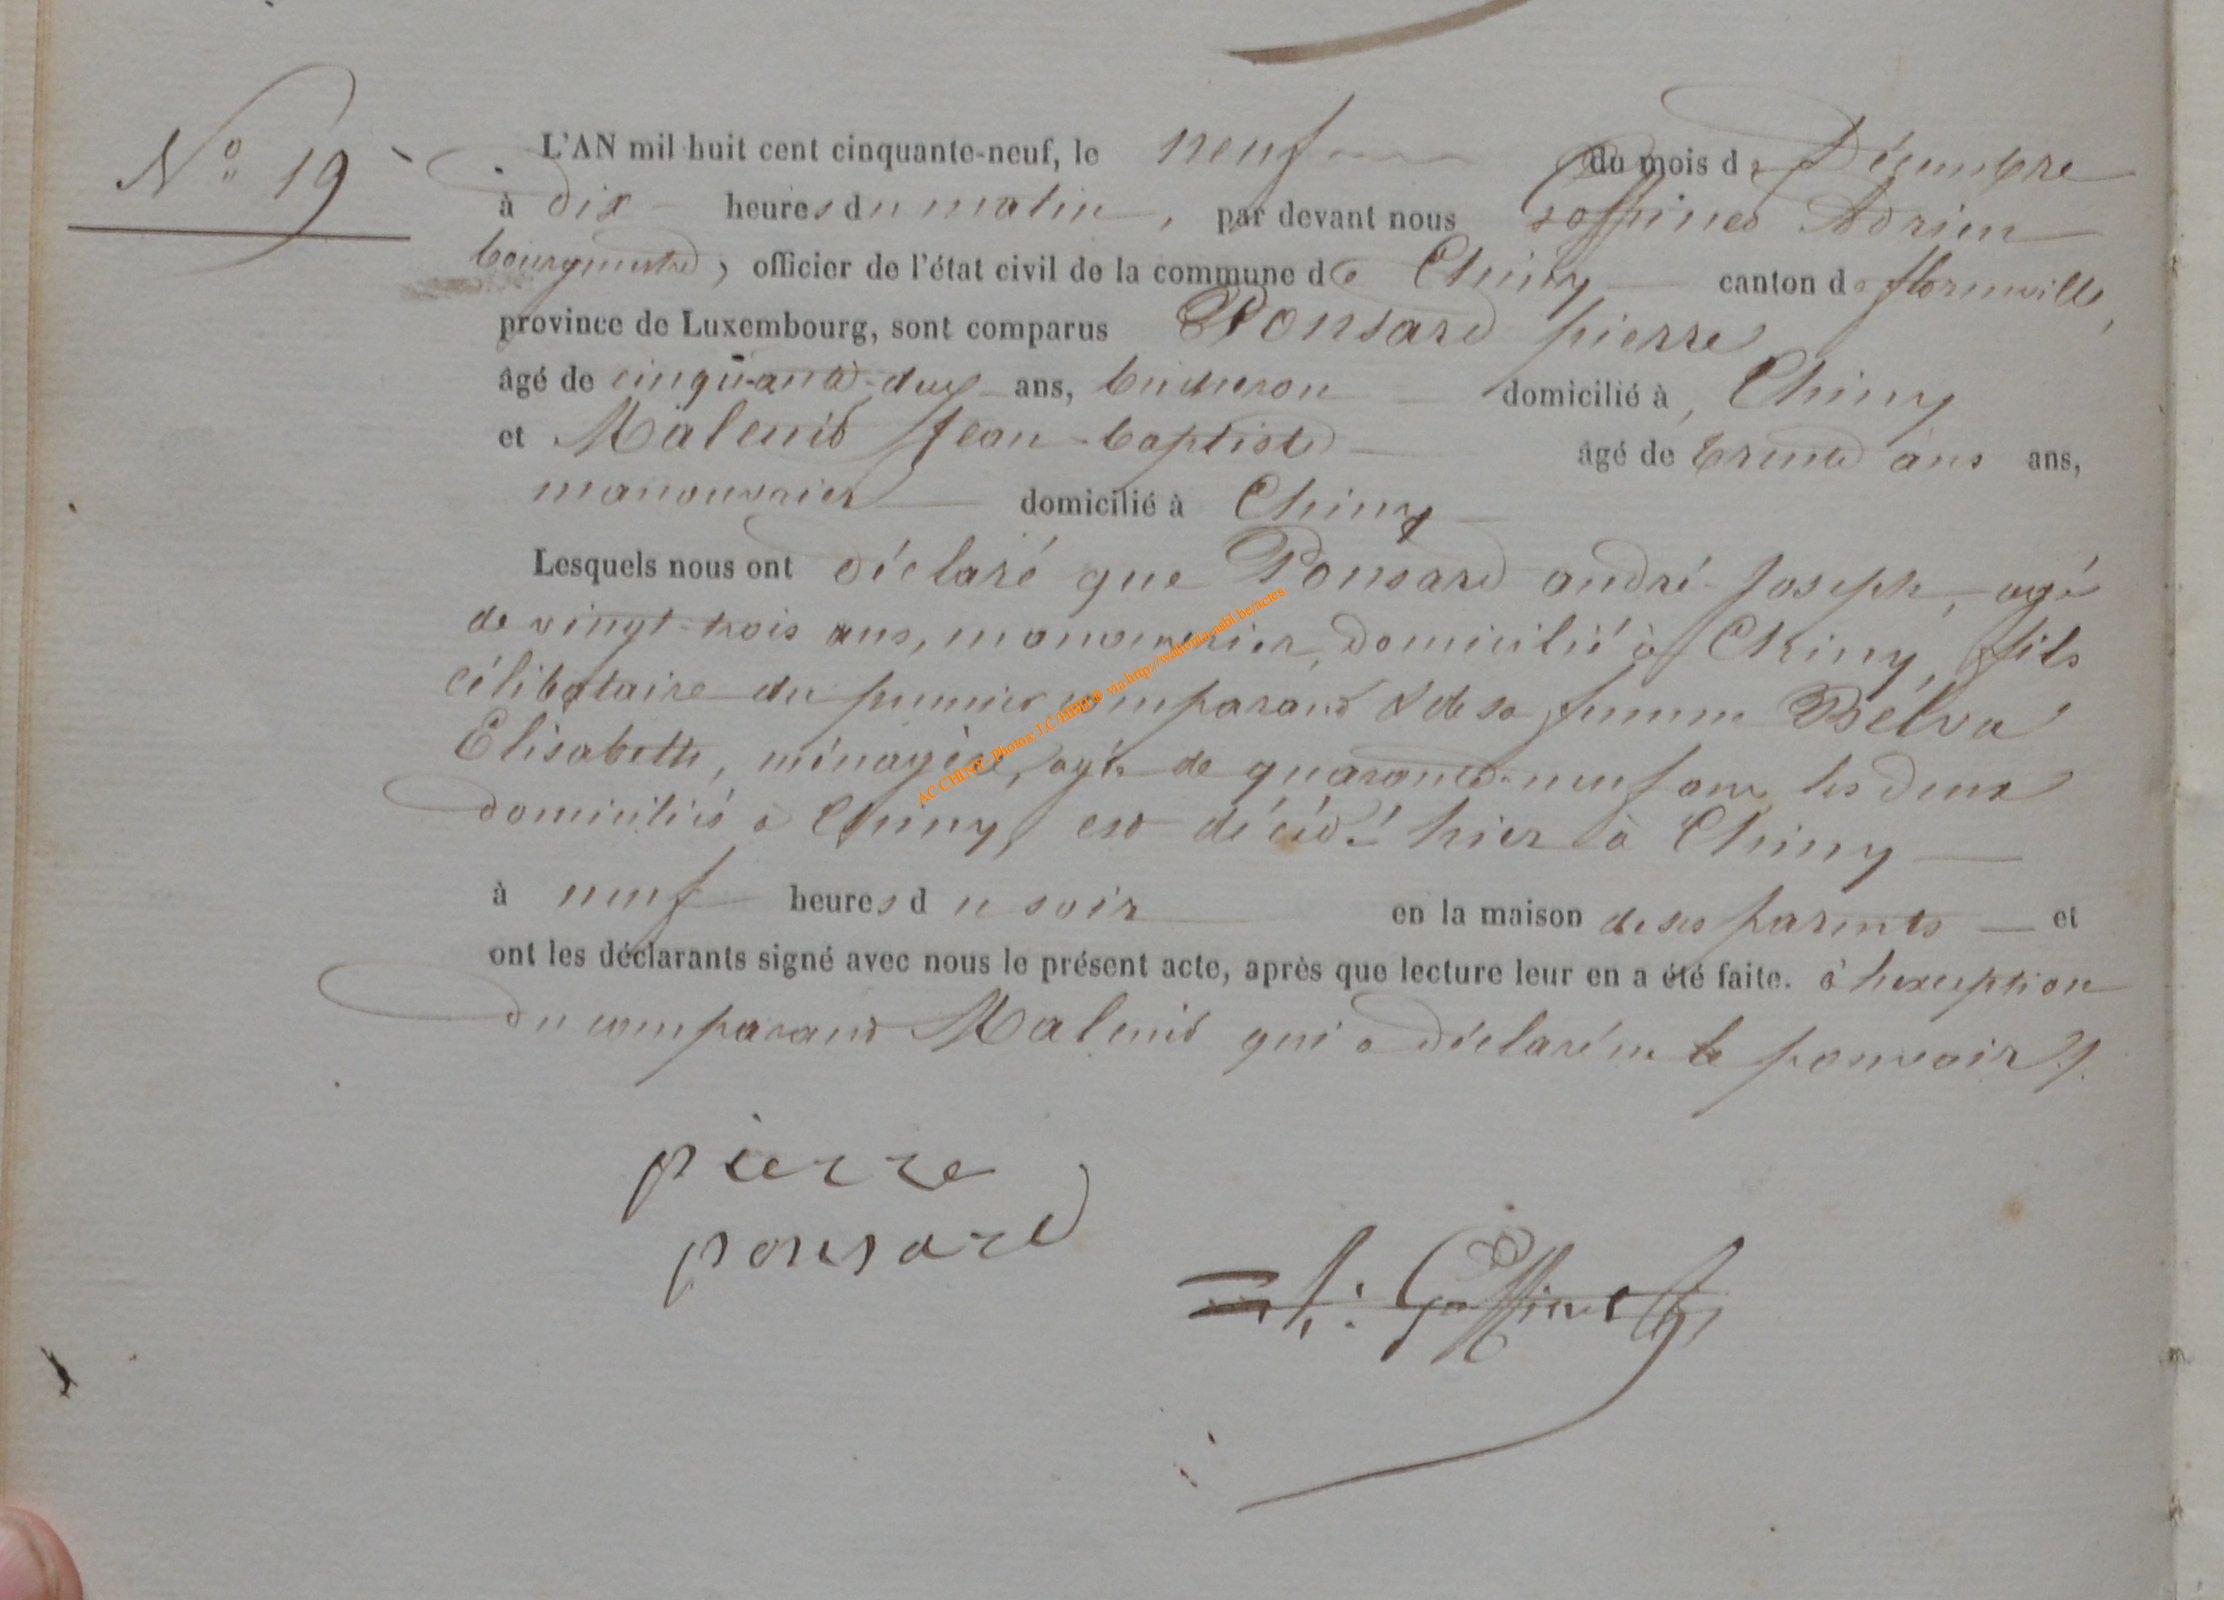 N° 19
L'AN mil huit cent cinquante-neuf, le neuf du mois de Décembre
à dix heures du matin, par devant nous Goffinet Adrien
bourgmestre, officier de l'état civil de la commune de Chiny canton de florenville,
province de Luxembourg, sont comparus Ponsard pierre
âgé de cinquante-deux ans, bucheron domicilié à, Chiny
et Jean-baptiste âgé de trente ans ans,
manouvrier domicilié à Chiny
Lesquels nous ont déclaré que Ponsard andré-Joseph, agé
de vingt-trois ans, manouvrier, domicilié à Chiny, fils
célibataire du premier comparant & de sa femme Belva
Elisabette, ménagère, agée de quarante-neuf ans, les deux
domiciliés à Chiny, est décédé hier à Chiny
à neuf heures du soir en la maison de ses parents et
ont les déclarants signé avec nous le présent acte, après que lecture leur en a été faite. à l'exception
du comparant qui a déclaré ne le pouvoir ./.
pierre
ponsard
A: Goffinet
AC CHINY- Photos: J.C HBH® via http://wallonia-asbl.be/actes